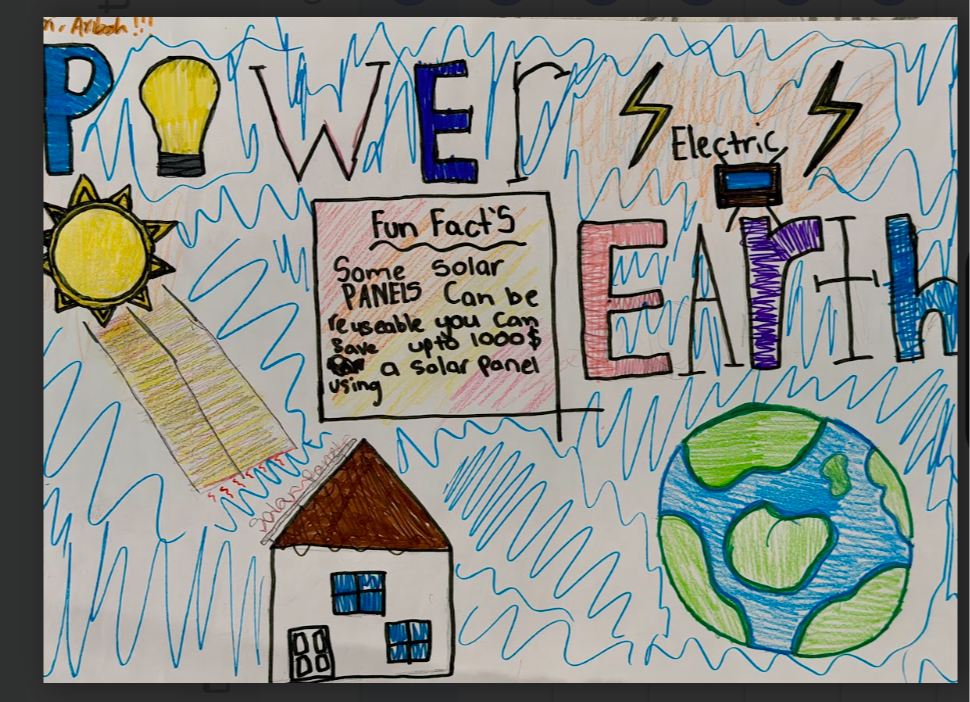 POWEr
Electric
EArth
Fun Fact's
Some Solar
PANELS Can be
reuseable you can
Save upto 1000$
a solar panel
using
solar Panels